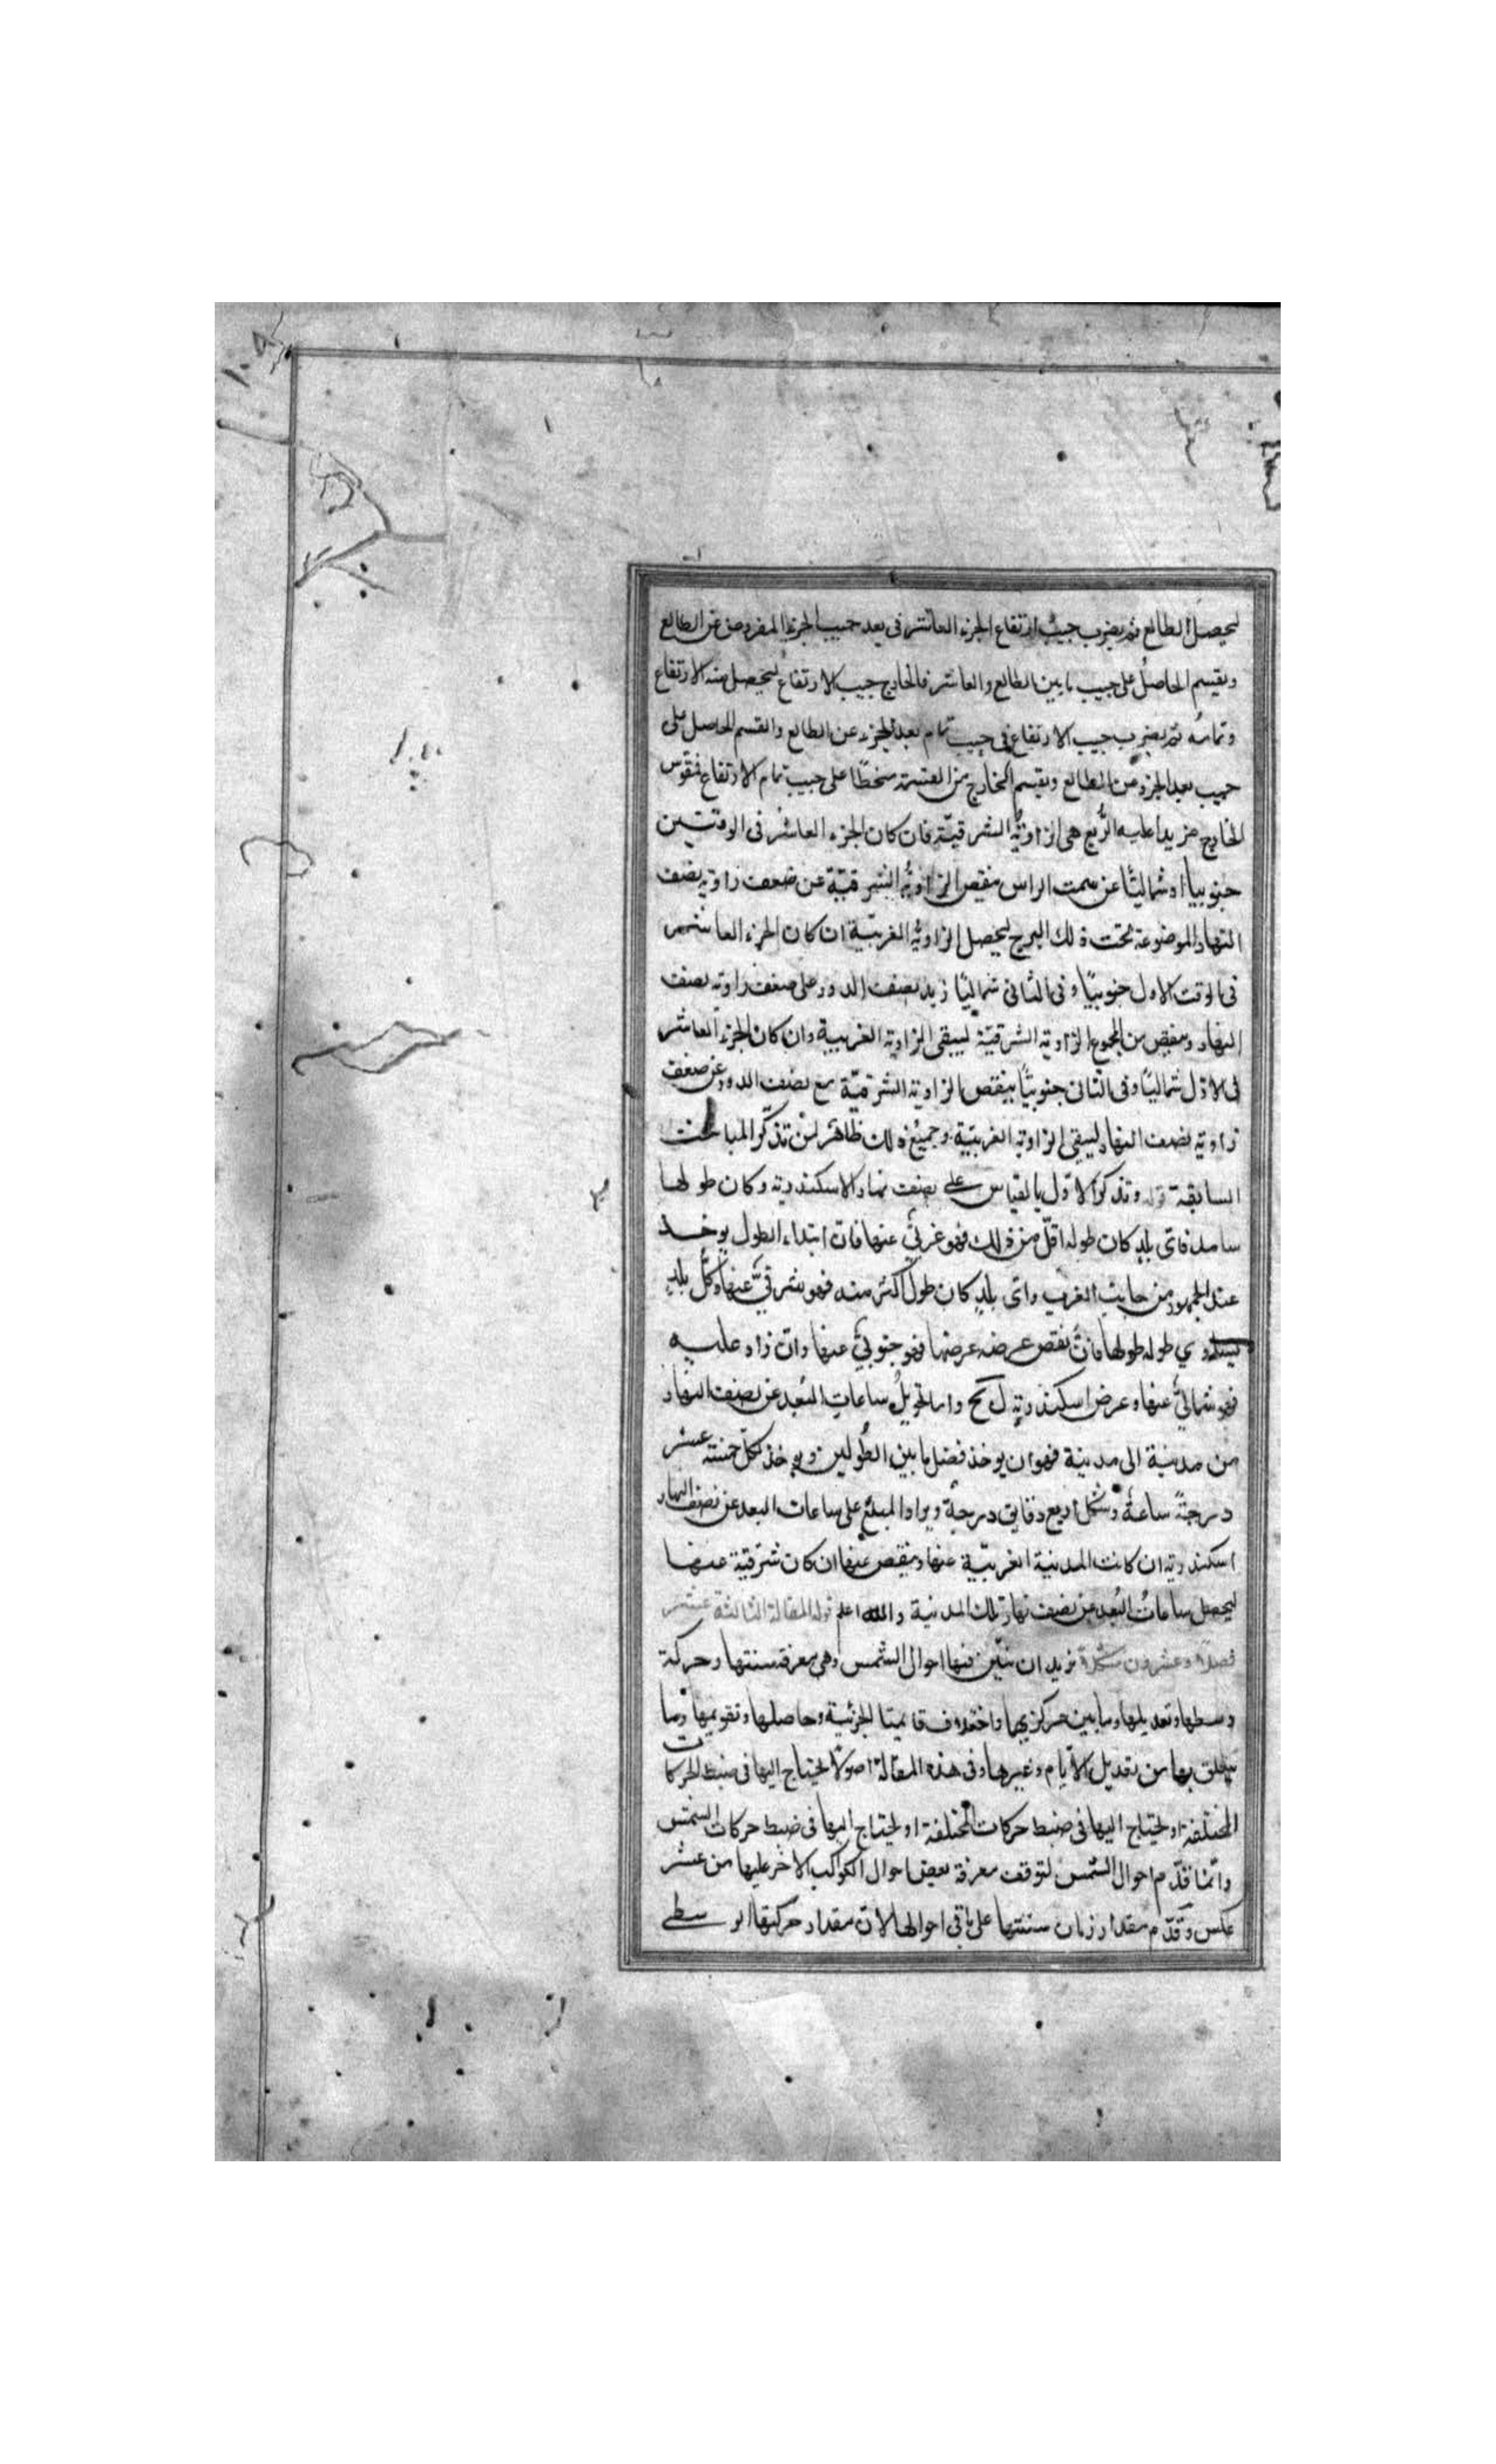 ليحصل الطالع ثم يضرب جيب ارتفاع الجزء العاشر فى بعد جيب الجزء المفروض عن الطالع
ويقسم الحاصل على جيب ما بين الطالع والعاشر فالخارج جيب الارتفاع ليحصل منه الارتفاع
وتمامه ثم يضرب جيب الارتفاع فى جيب تمام بعد الجزء عن الطالع والقسم الحاصل على
جيب بعد الجزء من الطالع ويقسم الخارج من القسمة منحطًا على جيب تمام الارتفاع فقوس
الخارج مزيدا عليه الربع هى الزاوية الشرقيّة فان كان الجزء العاشر فى الوقتين
جنوبيا او شماليًّا عن سمت الراس ينقص الزاوية الشرقيّة عن ضعف زاوية نصف
النهار الموضوعة تحت ذلك البرج ليحصل الزاوية الغربيّة ان كان الجزء العاشر
فى الوقت الاول جنوبيًا وفى الثانى شماليًا زيد نصف الدور على ضعف زاوية نصف
النهار وينقص من المجموع الزاوية الشرقيّة ليبقى الزاوية الغربية وان كان الجزء العاشر
فى الاوّل شماليًا وفى الثانى جنوبيًا ينقص الزاوية الشرقيّة مع نصف الدور عن ضعف
زاوية نصف النهار ليبقى الزاوية الغربيّة وجميع ذلك ظاهر لمن تذكّر المباحث
السابقة قوله وتذكر الاوّل بالقياس على نصف نهار الاسكندرية وكان طولها
فاى بلدٍ كان طوله اقلّ من ذلك فهو غربىّ عنها فان ابتداء الطول يوخذ
عند الجمهور من جانب الغرب واى بلدٍ كان طول اكثر منه فهو شرقىّ عنها وكلّ بلدٍ
يساوي طوله طولها فان نقص عرضه عرضها فهو جنوبىّ عنها وان زاد عليه
فهو شمالىّ عنها وعرض اسكندرية ل نح واما تحويل ساعات البُعد عن نصف النهار
من مدينة الى مدينة فهو ان يوخذ فضل ما بين الطولين ويوخذ لكلّ خمسة عشر
درجةً ساعةً ولكل اربع دقايق درجة ويزاد المبلغ على ساعات البعد عن نصف النهار
اسكندرية ان كانت المدينة الغربيّة عنها وينقص عنها ان كان شرقيّة عنها
ليحصل ساعاتُ البُعد عن نصف نهار تلك المدينة والله اعلم قوله المقالة الثالثة عشر
فصلا وعشرون شكلا نريد ان نبيّن فيها احوال الشمس وهى معرفة سنتها وحركة
وسطها وتعديلها وما بين مركزيها واختلاف الجزئية وحاصلها وتقويمها وما
يتعلق بها من تعديل الايّام وغيرها وفى هذه المقالة اصولاً يحتاج اليها فى ضبط الحركات
المختلفة او يحتاج اليها فى ضبط حركات المختلفة او يحتاج اليها فى ضبط حركات الشمس
وانّما قدّم احوال الشمس لتوقف معرفة بعض احوال الكواكب الاخر عليها من غير
عكس وقدّم مقدار زمان سنتها على باقى احوالها لان مقدار حركتها الوسطى